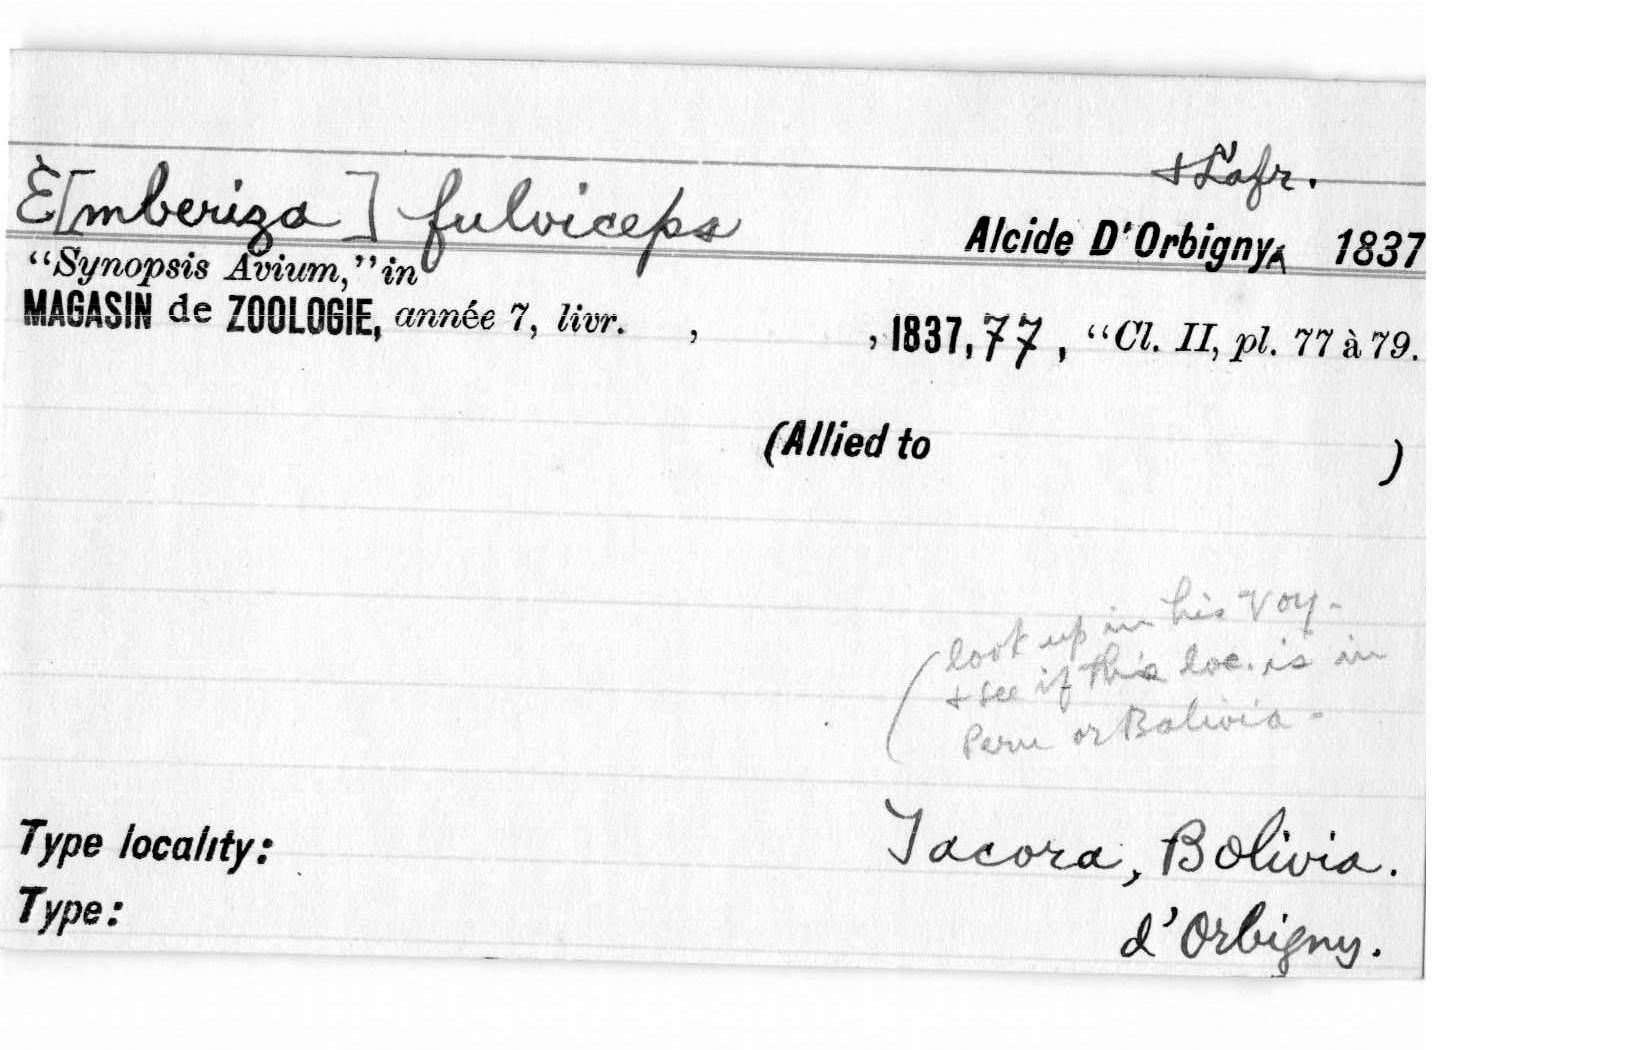 + Lafr.
E[mberiza] fulviceps Alcide D'Orbigny^ 1837
“Synopsis Avium,” in
MAGASIN de ZOOLOGIE, année 7, livr. , , 1837, 77, “Cl. II, pl. 77 à 79.
(Allied to )
(look up in his Voy-
+ see if this loc. is in
Peru or Bolivia -
Type locality: Tacora, Bolivia.
Type: d'Orbigny.